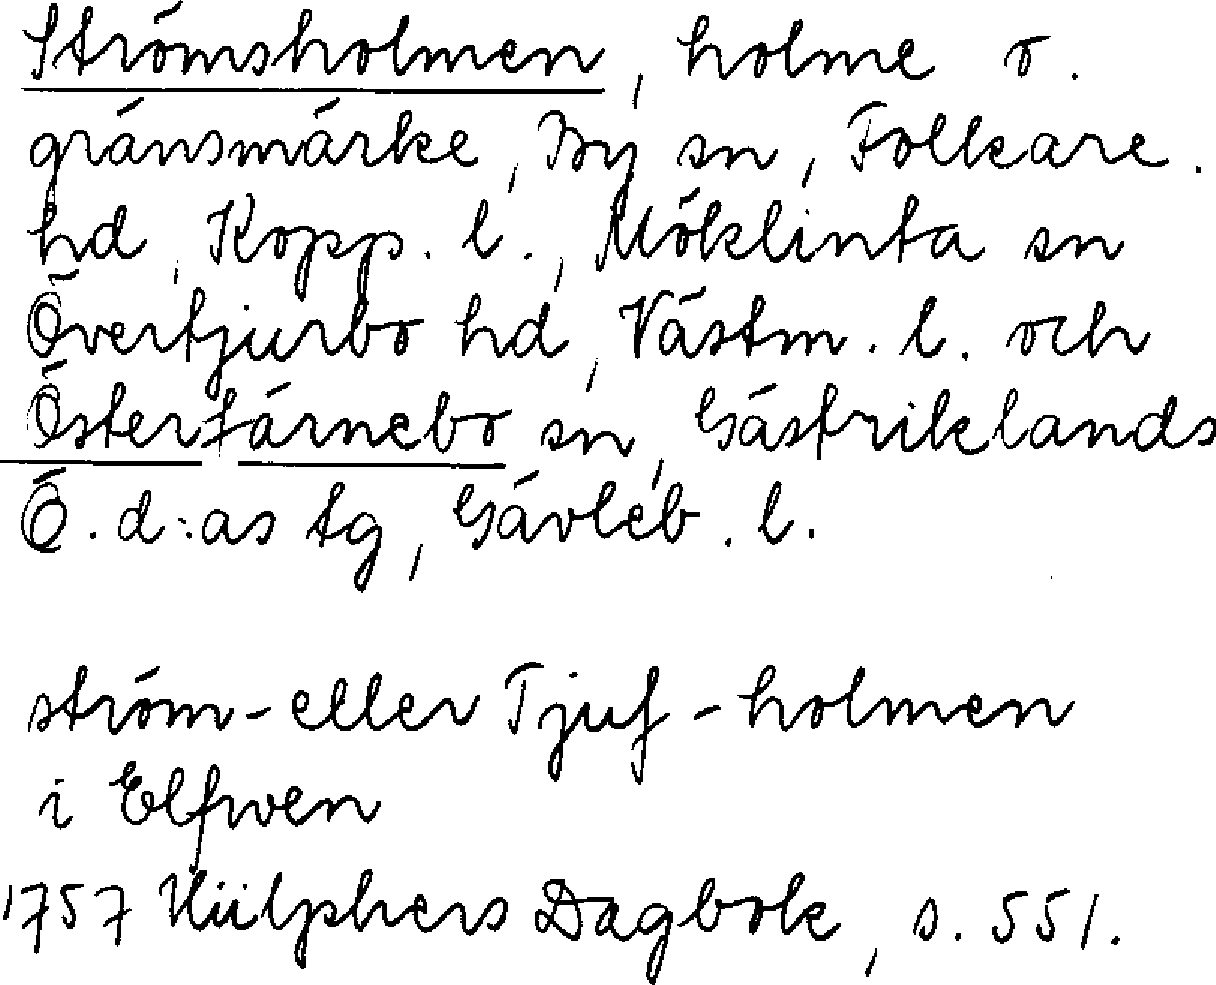 Strömsholmen, holme o.
gränsmärke, By sn, Folkare.
hd, Kopp. l., Möklinta sn
Övertjurbo hd, Västm. l. och
Österfärnebo sn, Gästriklands
Ö. d:as tg, Gävleb. l.
ström-eller Tjuf-holmen
i Elfwen
1757 Hülphers Dagbok, s. 551.